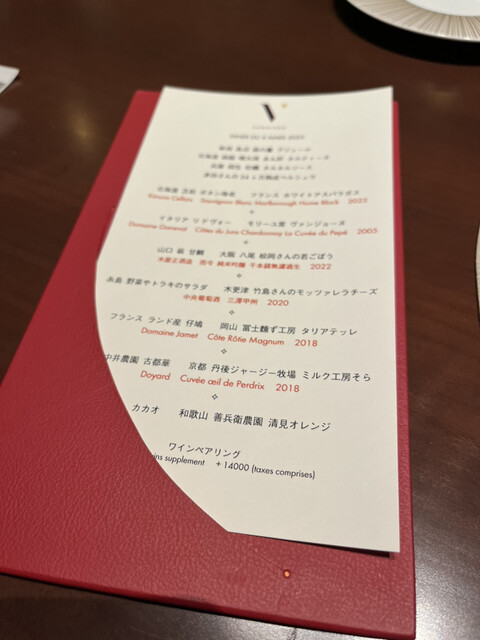 V
北海道 苫前 ボタン海老 フランス ホワイトアスパラガス
Kimura Cellars Sauvignon Blanc Marlborough Home Block 2022
イタリア リドヴォー モリーユ茸 ヴァンジョーヌ
Domaine Ganevat Côtes du Jura Chardonnay La Cuvée du Pépé 2005
山口 萩 甘鯛 大阪 八尾 松岡さんの若ごぼう
木屋正酒造 而今 純米吟醸 千本錦無濾過生 2022
糸島 野菜やトラキのサラダ 木更津 竹島さんのモッツァレラチーズ
中央葡萄酒 三澤甲州 2020
フランス ランド産 仔鳩 岡山 冨士麺ず工房 タリアテッレ
Domaine Jamet Côte Rôtie Magnum 2018
中井農園 古都華 京都 丹後ジャージー牧場 ミルク工房そら
Doyard Cuvée œil de Perdrix 2018
カカオ 和歌山 善兵衛農園 清見オレンジ
ワインペアリング
ins supplement + 14000 (taxes comprises)